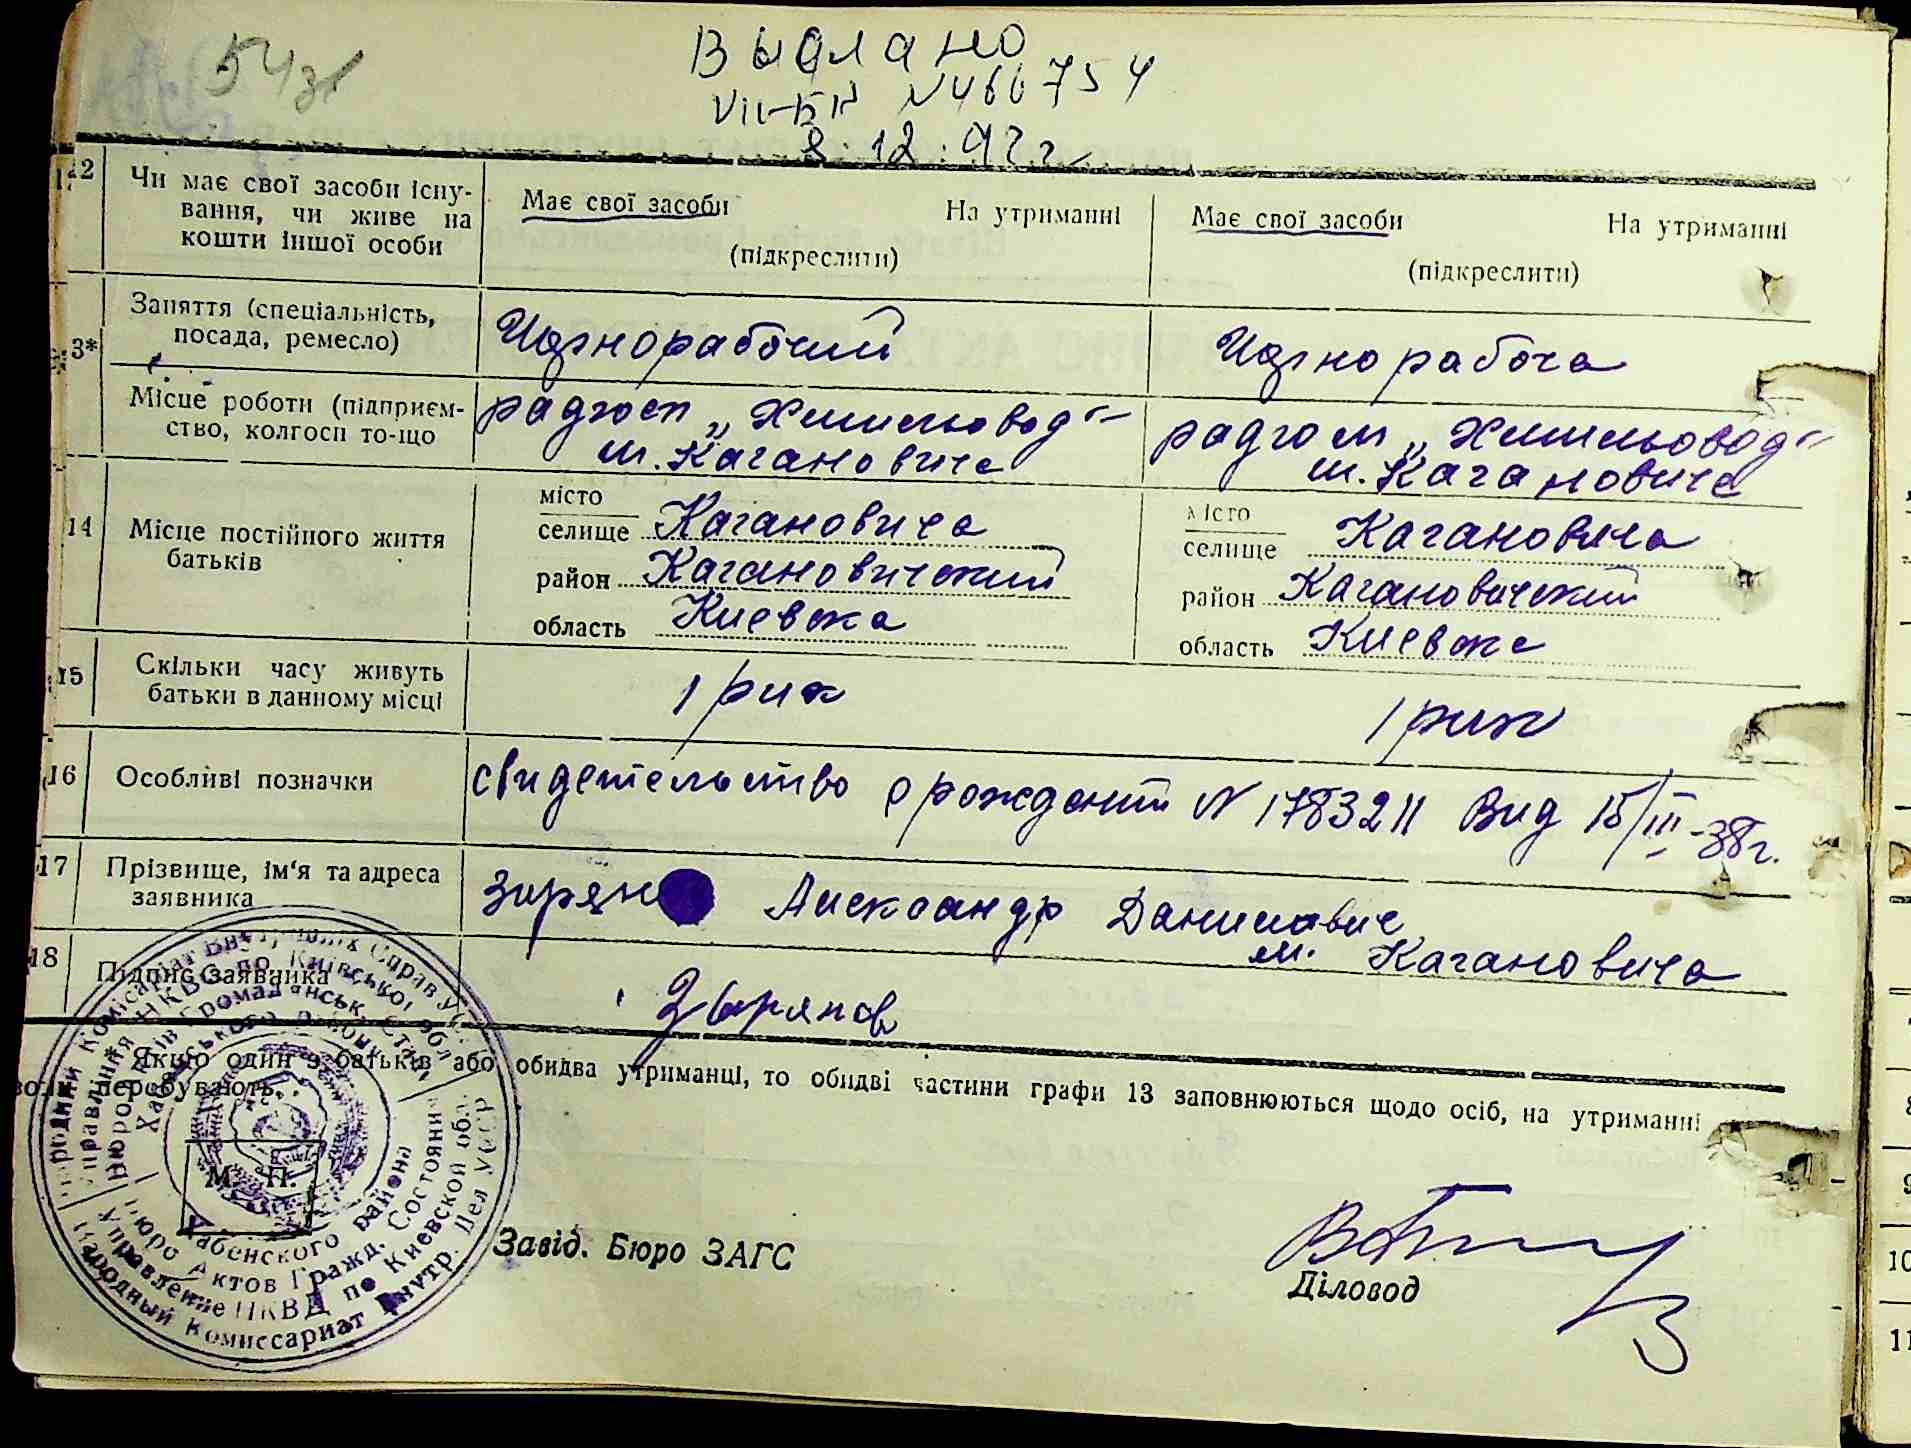 54
Выдано
VII-БК N 466754
8.12.97г
12
Чи має свої засоби існу-
вання, чи живе на
кошти іншої особи
Має свої засоби На утриманні
(підкреслити)
Має свої засоби На утриманні
(підкреслити)
3*
Заняття (спеціальність,
посада, ремесло)
Чорнорабочий
Чорнорабоча
Місце роботи (підприєм-
ство, колгосп то-що
радгосп „Хмильовод"
м. Кагановича
радгосп „Хмильовод"
м. Кагановича
14
Місце постійного життя
батьків
місто
селище Кагановича
район Кагановический
область Киевска
місто
селище Кагановича
район Кагановический
область Киевска
15
Скільки часу живуть
батьки в данному місці
1 рик
1 рик
16
Особливі позначки
свидетельство о рождении N 1783211 Выд 15/III-38г.
17
Прізвище, ім'я та адреса
заявника
Зирян Александр Данилавич
м. Кагановича
18
Підпис заявника
Зырянов
Якщо один з батьків або обидва утриманці, то обидві частини графи 13 заповнюються щодо осіб, на утриманні
вони перебувають.
М. П.
Народний Комісаріат Внутрішніх Справ УССР
Управління НКВС по Київської обл
Бюро Актів Громадянськ. Стану
Хабенського району
Хабенского района
Бюро Актов Гражд. Состояния
Управление НКВД по Киевской обл.
Народный Комиссариат Внутр. Дел УССР
Завід. Бюро ЗАГС
Діловод
8
9
10
11